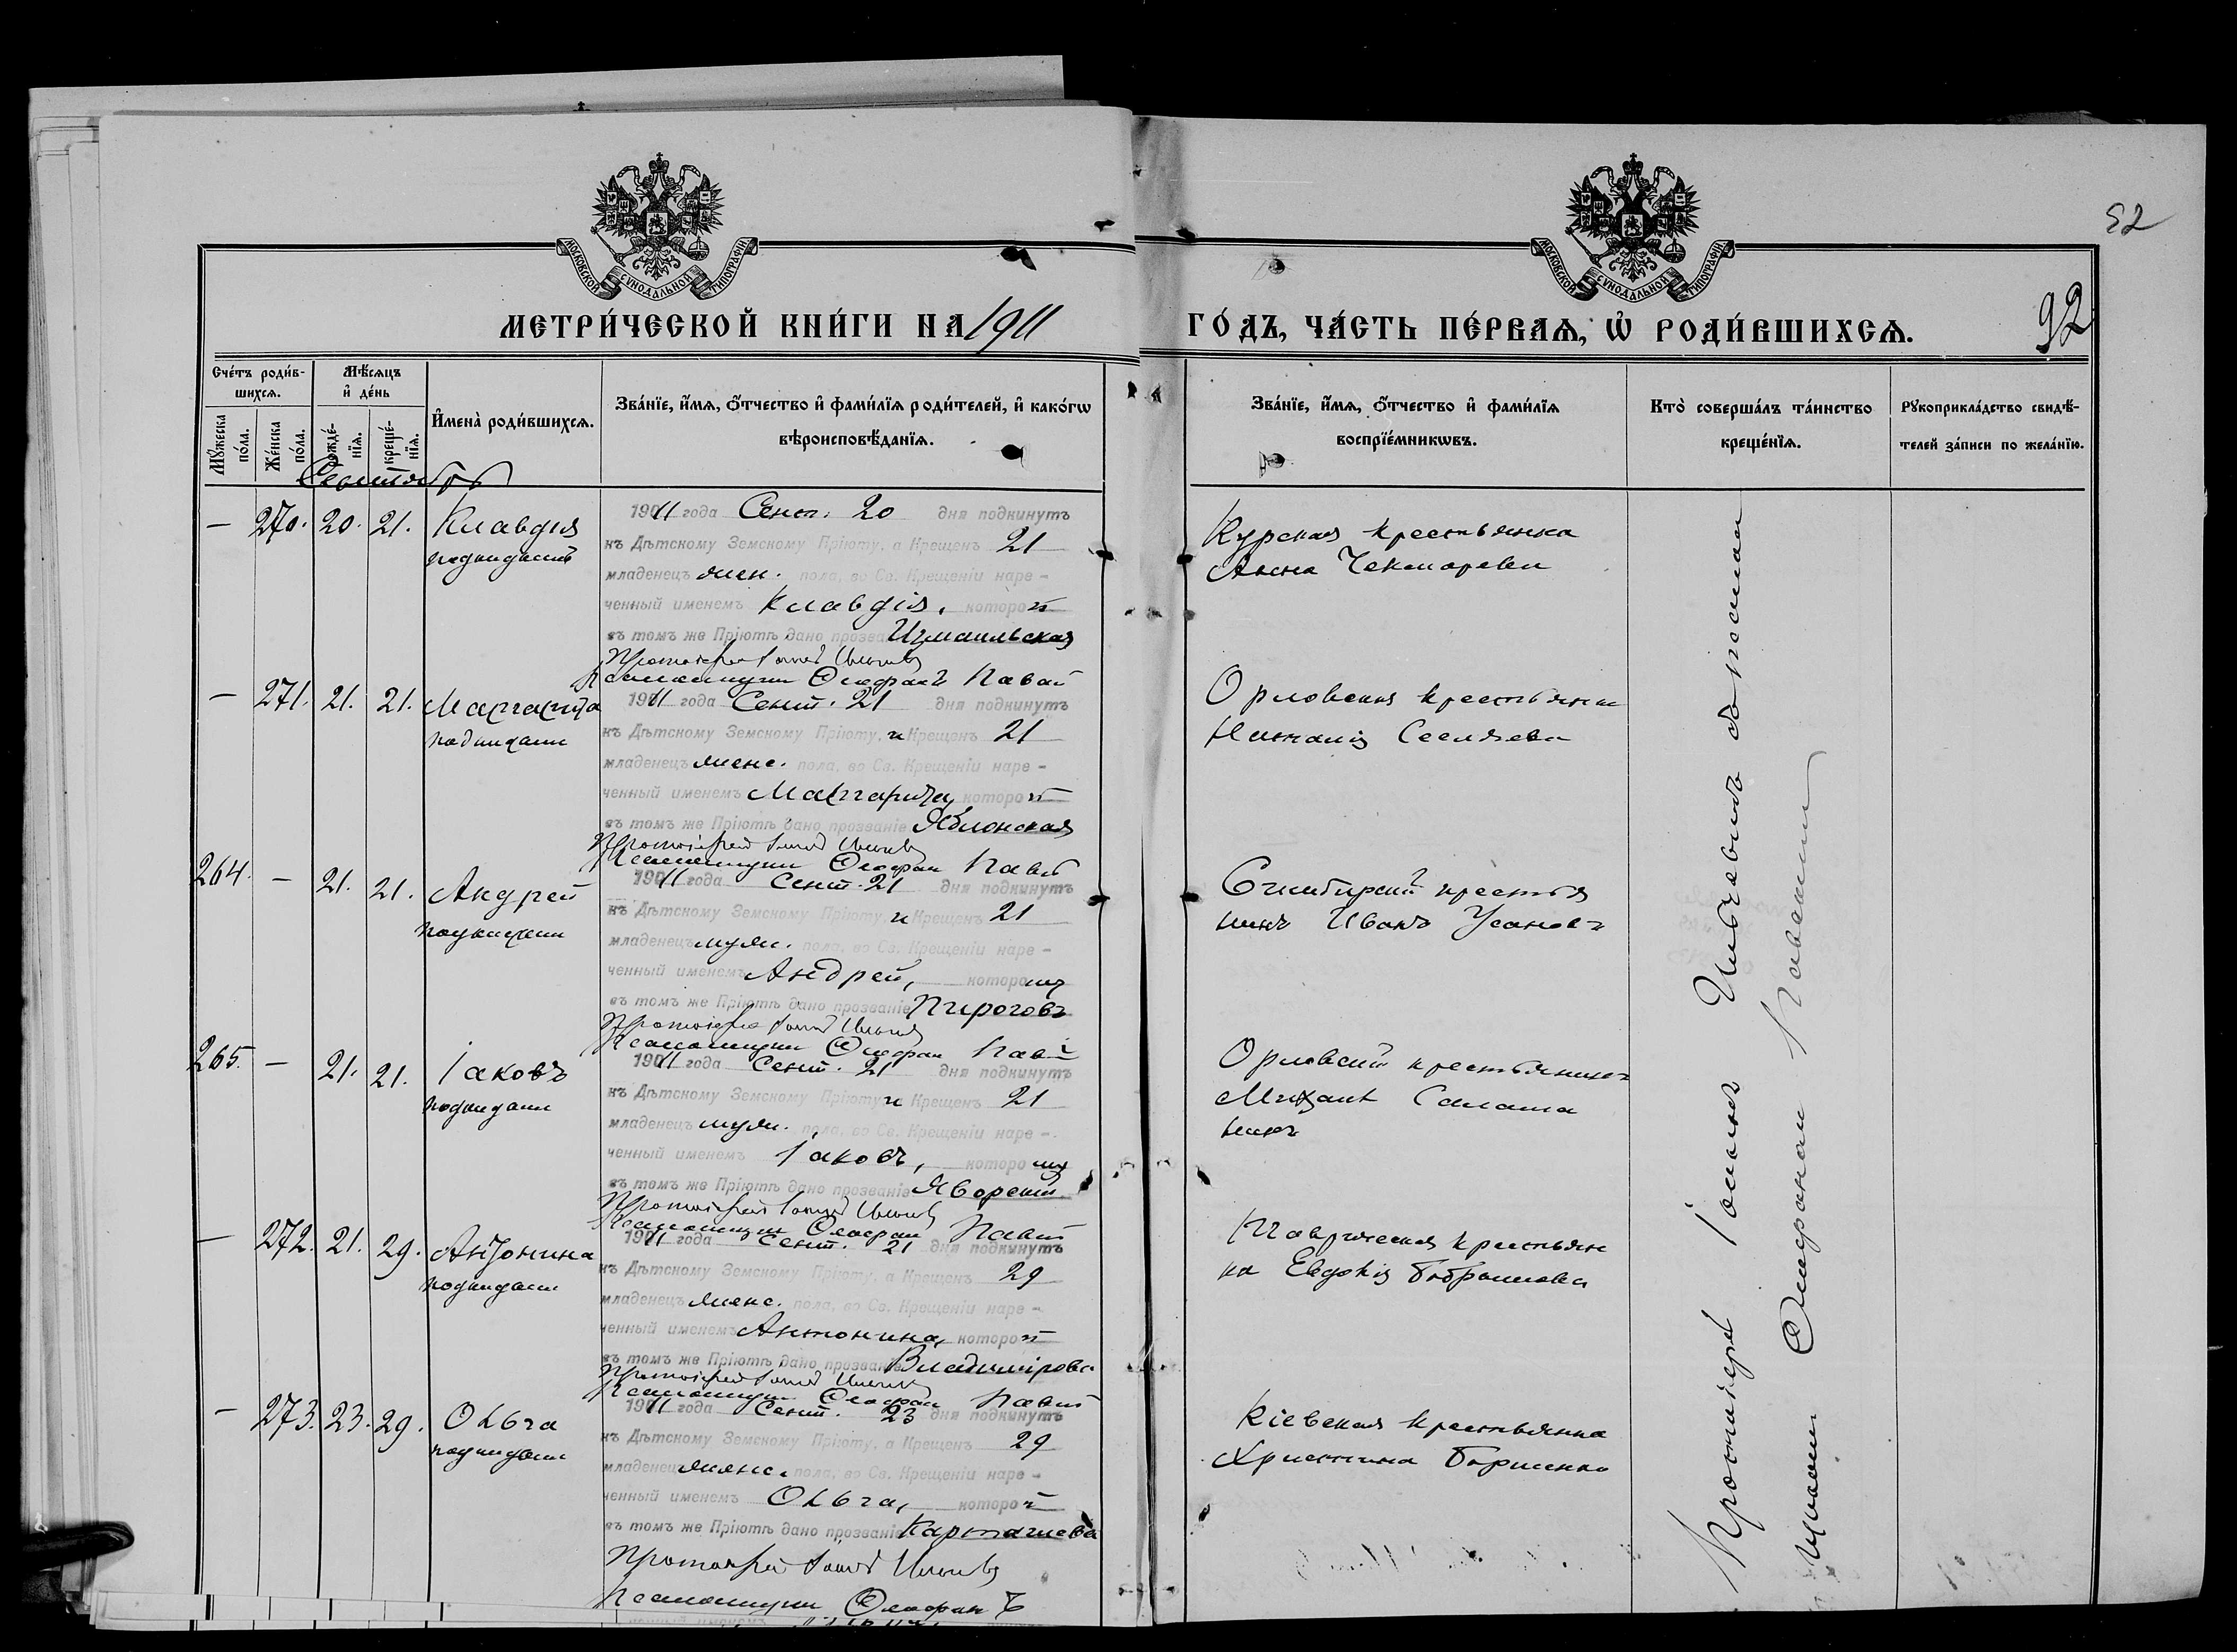 МОСКОВСКОЙ СѴНОДАЛЬНОЙ ТИПОГРАФІИ
МОСКОВСКОЙ СѴНОДАЛЬНОЙ ТИПОГРАФІИ
52
МЕТРИ́ЧЕСКОЙ КНИ́ГИ НА 1911
ГО́ДЪ, ЧА́СТЬ ПЕ́РВАѦ, Ѡ҆ РОДИ́ВШИХСѦ.
92
Сче́тъ роди́в-
шихсѧ.
Мꙋ́жеска по́ла.
Же́нска по́ла.
Мѣ́сѧцъ
и҆ де́нь
рожде́нїѧ.
креще́нїѧ.
И҆мена̀ роди́вшихсѧ.
Зва́нїе, и҆́мѧ, ѻ҆́тчество и҆ фами́лїѧ роди́телей, и҆ како́гѡ
вѣроисповѣ́данїѧ.
Зва́нїе, и҆́мѧ, ѻ҆́тчество и҆ фами́лїѧ
воспрїе́мникѡвъ.
Кто̀ соверша́лъ та́инство
креще́нїѧ.
Рꙋкоприкла́дство свидѣ́-
телей за́писи по жела́нїю.
Сентябрь
— 270. 20. 21. Клавдія
подкидышъ
1911 года Сент. 20 дня подкинутъ
къ Дѣтскому Земскому Пріюту, а Крещенъ 21
младенецъ жен. пола, во Св. Крещеніи наре-
ченный именемъ Клавдія, которой
въ томъ же Пріютѣ дано прозва Измаильская
Протоіерей Іоаннъ
Псаломщикъ Ѳеофанъ
Курская крестьянка
Анна Чекмарева
— 271. 21. 21. Маргарита
подкидыш
1911 года Сент. 21 дня подкинутъ
къ Дѣтскому Земскому Пріюту, и Крещенъ 21
младенецъ женс. пола, во Св. Крещеніи наре-
ченный именемъ Маргарита, которой
въ томъ же Пріютѣ дано прозваніе Яблонская
Протоіерей Іоаннъ
Псаломщикъ Ѳеофан
Орловская крестьянка
Наталія
264. — 21. 21. Андрей
подкидыш
1911 года Сент. 21 дня подкинутъ
къ Дѣтскому Земскому Пріюту и Крещенъ 21
младенецъ муж. пола, во Св. Крещеніи наре-
ченный именемъ Андрей, которому
въ томъ же Пріютѣ дано прозваніе Пироговъ
Протоіерей Іоаннъ
Псаломщикъ Ѳеофан
Симбирскій крестья
нинъ Иванъ Усановъ
265. — 21. 21. Іаковъ
подкидыш
1911 года Сент. 21 дня подкинутъ
къ Дѣтскому Земскому Пріюту и Крещенъ 21
младенецъ муж. пола, во Св. Крещеніи наре-
ченный именемъ Іаковъ, которому
въ томъ же Пріютѣ дано прозваніе Яворскій
Протоіерей Іоаннъ
Псаломщикъ Ѳеофан
Орловскій крестьянинъ
Михаил Салама
нинъ
— 272. 21. 29. Антонина
подкидыш
1911 года Сент. 21 дня подкинутъ
къ Дѣтскому Земскому Пріюту, а Крещенъ 29
младенецъ женс. пола, во Св. Крещеніи наре-
ченный именемъ Антонина, которой
въ томъ же Пріютѣ дано прозваніе Владимірова
Протоіерей Іоаннъ
Псаломщикъ Ѳеофан
Таврическая крестьян
ка Евдокія
— 273. 23. 29. Ольга
подкидыш
1911 года Сент. 23 дня подкинутъ
къ Дѣтскому Земскому Пріюту, а Крещенъ 29
младенецъ женс. пола, во Св. Крещеніи наре-
ченный именемъ Ольга, которой
въ томъ же Пріютѣ дано прозваніе Карташева
Протоіерей Іоаннъ
Псаломщикъ Ѳеофан
Кіевская крестьянка
Христина Борисенко
Протоіерей Іоаннъ съ псаломщ